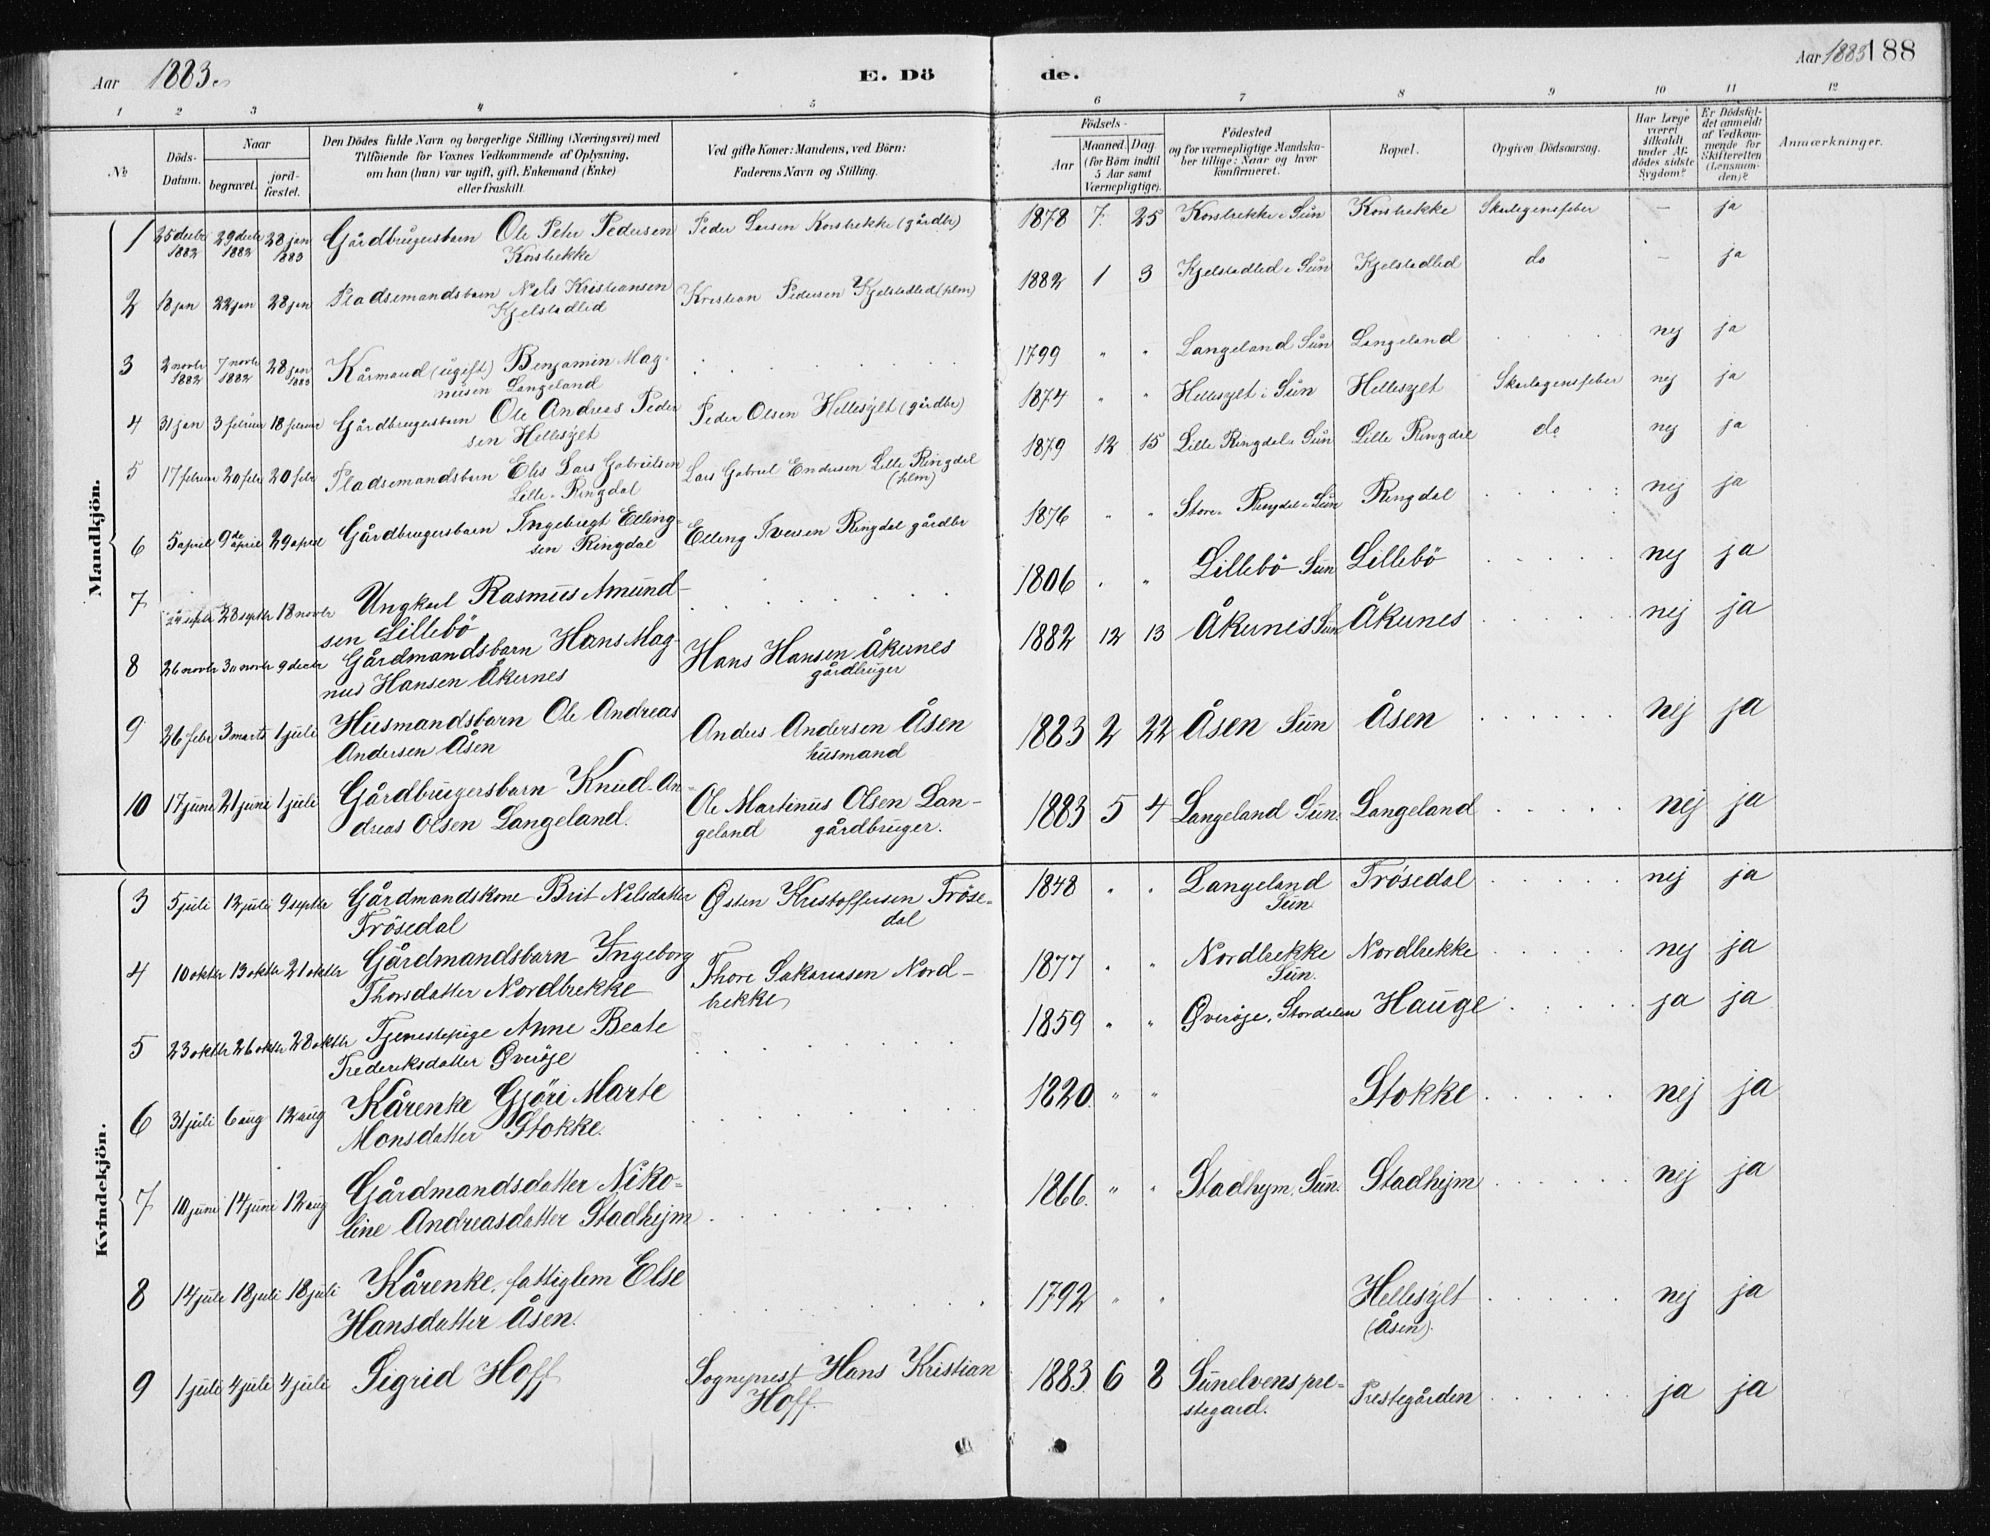 Aar 1883. E. Dö de. Aar 1883 188
1 2 3 4 5 6 7 8 9 10 11 12
No Döds-Datum. Naar begravet. jordfæstet. Den Dödes fulde Navn og borgerlige Stilling (Næringsvei) med Tilföiende for Voxnes Vedkommende af Oplysning, om han (hun) var ugift, gift, Enkemand (Enke) eller fraskilt. Ved gifte Koner: Mandens, ved Börn: Faderens Navn og Stilling. Födsels- Aar Maaned. Dag. (for Börn indtil 5 Aar samt Værnepligtige). Födested og for værnepligtige Mandskaber tillige: Naar og hvor konfirmeret. Bopæl. Opgiven Dödsaarsag. Har Læge været tilkaldt under Afdödes sidste Sygdom? Er Dödsfaldet anmeldt af Vedkommende for Skifteretten (Lensmanden)? Anmærkninger.
Mandkjön.
1 25 decbr 1882 29 decbr 1882 28 jan 1883 Gårdbrugersbarn Ole Peter Pedersen Peder Larsen Korsbrekke (gårdbr) 1878 7 25 Korsbrekke i Sun Korsbrekke Skarlagensfeber - ja
Korsbrekke
2 18 jan 22 jan 28 jan Pladsemandsbarn Nils Kristiansen Kristian Pedersen Kjelstadlid (plm) 1882 1 3 Kjelstadlid i Sun Kjelstadlid do - ja
Kjelstadlid
3 2 novbr 1882 7 novbr 1882 28 jan 1883 Kårmand (ugift) Benjamin Mag- 1799 " " Langeland Sun Langeland nej ja
nusen Langeland
4 31 jan 3 februar 18 februar Gårdbrugersbarn Ole Andreas Peder Peder Olsen Hellesylt (gårdbr) 1874 " " Hellesylt i Sun Hellesylt Skarlagensfeber nej ja
sen Hellesylt
5 17 februar 20 febr 20 febr Pladsemandsbarn Elis Lars Gabrielsen Lars Gabriel Endresen Lille Ringdal 1879 12 15 Lille Ringdal i Sun Lille Ringdal do nej ja
Lille-Ringdal (plm)
6 5 april 9de april 29 april Gårdbrugersbarn Ingebrigt Elling- Elling Iversen Ringdal gårdbr 1876 " " Store-Ringdal i Sun Ringdal nej ja
sen Ringdal
7 24 septbr 28 septbr 18 novbr Ungkarl Rasmus Amund- 1806 " " Lillebö Sun Lillebö nej ja
sen Lillebö
8 26 novbr 30 novbr 9 decbr Gårdmandsbarn Hans Mag- Hans Hansen Åkernes 1882 12 13 Åkernes Sun Åkernes nej ja
nus Hansen Åkernes gårdbruger
9 26 febr 3 marts 1 juli Husmandsbarn Ole Andreas Anders Andersen Åsen 1883 2 22 Åsen Sun Åsen nej ja
Andersen Åsen husmand
10 17 juni 21 juni 1 juli Gårdbrugersbarn Knud An- Ole Martinus Olsen Lan- 1883 5 4 Langeland Sun. Langeland nej ja
dreas Olsen Langeland. geland gårdbruger.
Kvindekjön.
3 5 juli 12 juli 9 septbr Gårdmandskone Brit Nilsdatter Østen Kristoffersen Fröse- 1848 " " Langeland Frösedal nej ja
Frösedal dal Sun
4 10 oktbr 13 oktbr 21 oktbr Gårdmandsbarn Ingeborg Thore Sakariasen Nord- 1877 " " Nordbrekke Nordbrekke nej ja
Thorsdatter Nordbrekke brekke Sun.
5 23 oktbr 26 oktbr 28 oktbr Tjenestepige Anne Beate 1859 " " Överöje, Stordalen Hauge ja ja
Frederiksdatter Överöje
6 31 juli 6 aug 12 aug Kårenke Gjöri Marte 1820. " " Stokke nej ja
Monsdatter Stokke.
7 10 juni 14 juni 12 aug Gårdmandsdatter Niko- 1866. " " Stadhejm, Sun. Stadhejm nej ja
line Andreasdatter Stadhejm
8 14 juli 18 juli 18 juli Kårenke, fattiglem Else 1792 " " Hellesylt nej ja
Hansdatter Åsen. (Åsen).
9 1 juli 4 juli 4 juli Sigrid Hoff Sogneprest Hans Kristian 1883 6 8 Sunelvens pre- Prestegården ja ja
Hoff. stegard.